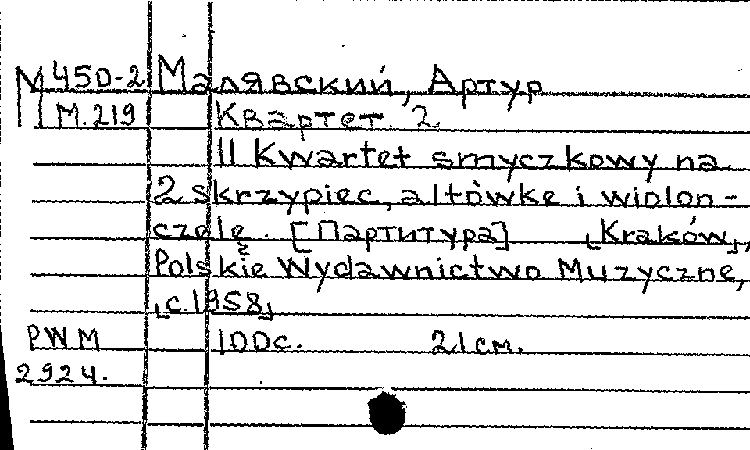 М 450-2 Малявский, Артур
М.219 Квартет. 2
II Kwartet smyczkowy na
2 skrzypiec, altówkę i wiolon-
czelę. [Партитура] [Kraków],
Polskie Wydawnictwo Muzyczne,
[c.1958]
PWM 100с. 21см.
2924.